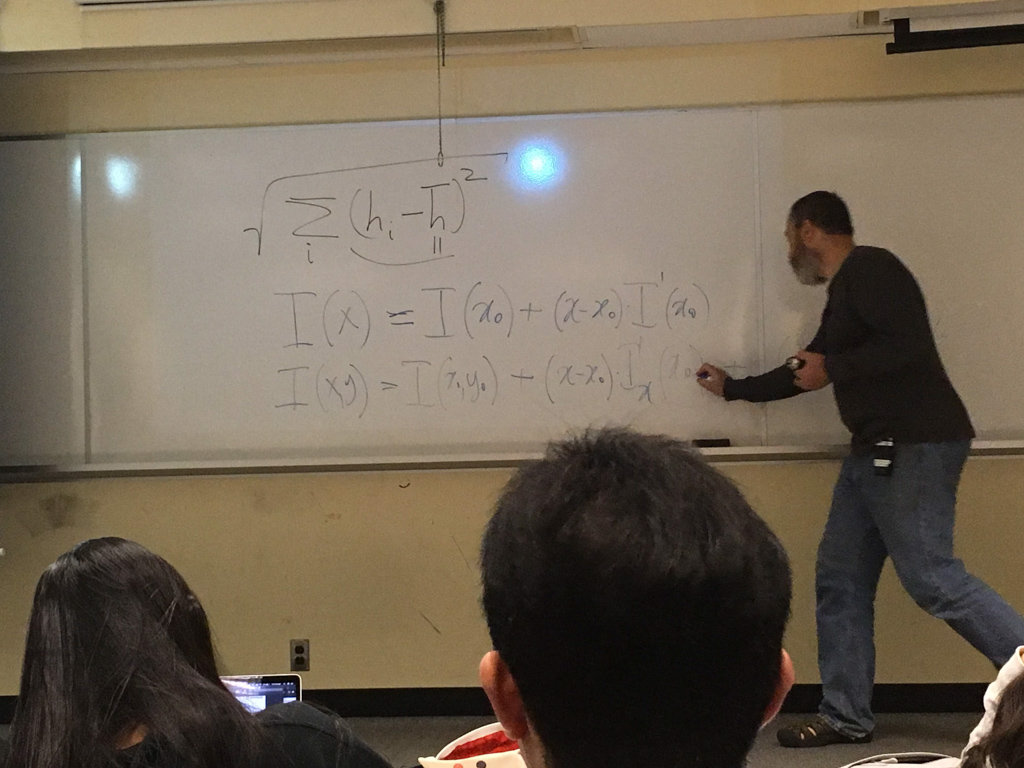 √ Σ_i (h_i - h̄)²
I(x) = I(x₀) + (x-x₀)·I'(x₀)
I(x,y) = I(x₀,y₀) + (x-x₀)·I'_x(x₀